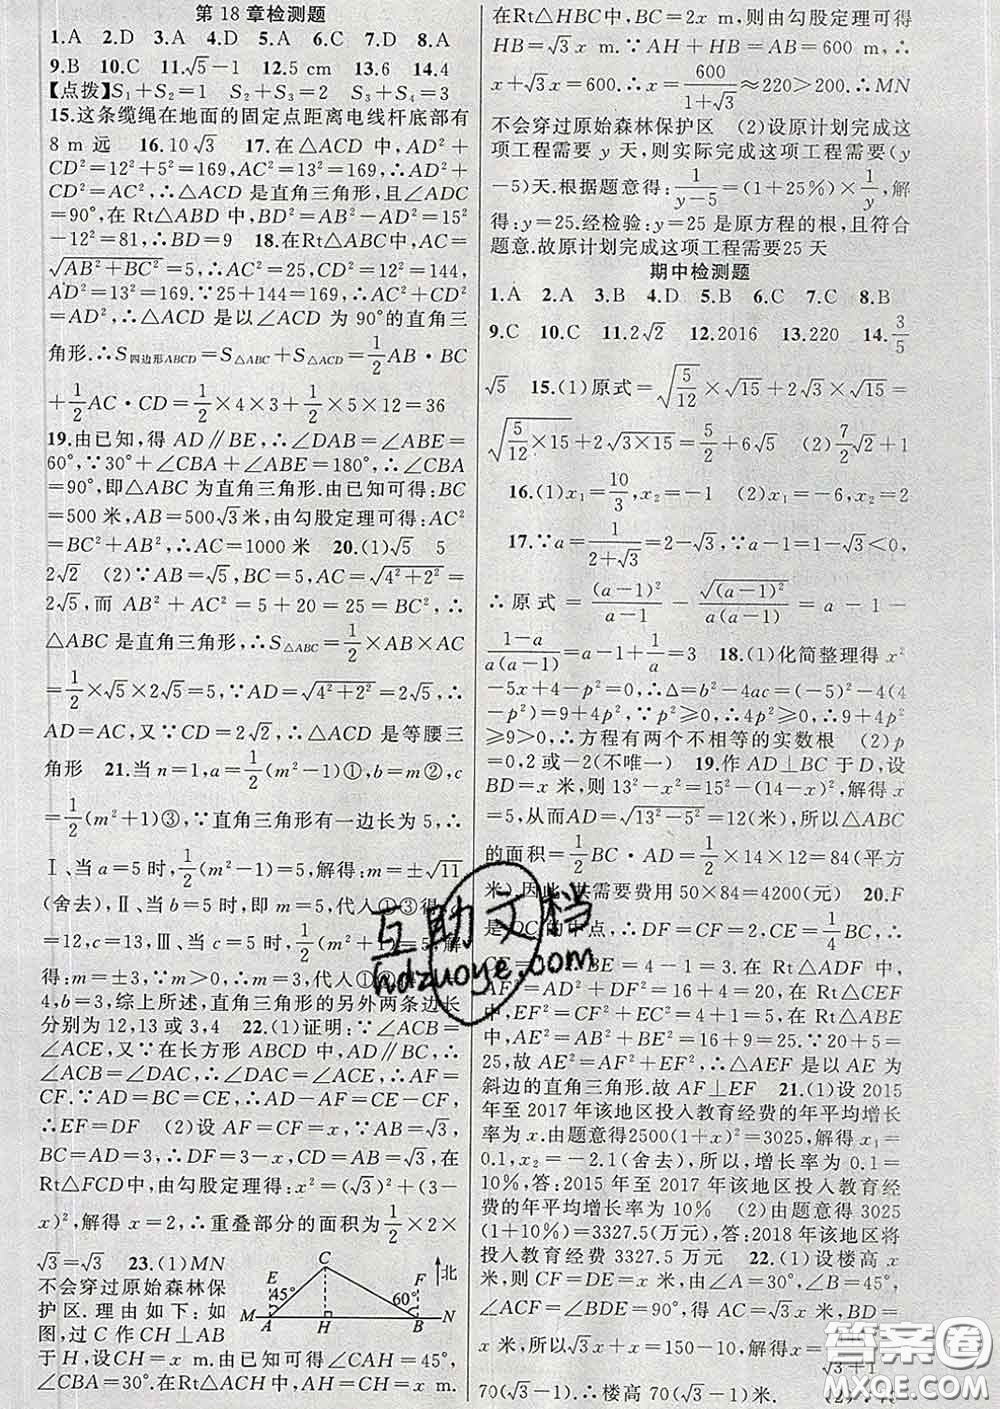 第 18 章检测题
1.A 2.D 3.A 4.D 5.A 6.C 7.D 8.A
9.B 10.C 11.√5－1 12.5 cm 13.6 14.4
【点拨】S₁＋S₂＝1 S₂＋S₃＝2 S₃＋S₄＝3
15.这条缆绳在地面的固定点距离电线杆底部有
8 m 远 16.10√3 17.在△ACD 中,AD²＋
CD²＝12²＋5²＝169.AC²＝13²＝169.∴AD²＋
CD²＝AC²,∴△ACD 是直角三角形,且∠ADC
＝90°,在 Rt△ABD 中,BD²＝AB²－AD²＝15²
－12²＝81,∴BD＝9 18.在Rt△ABC中,AC＝
√(AB²＋BC²)＝5,∴AC²＝25,CD²＝12²＝144,
AD²＝13²＝169.∵25＋144＝169,∴AC²＋CD²
＝AD²,∴△ACD 是以∠ACD 为 90°的直角三
角形.∴S四边形ABCD＝S△ABC＋S△ACD＝1/2 AB·BC
＋1/2 AC·CD＝1/2×4×3＋1/2×5×12＝36
19.由已知,得 AD∥BE,∴∠DAB＝∠ABE＝
60°,∵30°＋∠CBA＋∠ABE＝180°,∴∠CBA
＝90°,即△ABC 为直角三角形.由已知可得:BC
＝500 米,AB＝500√3 米,由勾股定理可得:AC²
＝BC²＋AB²,∴AC＝1000 米 20.(1)√5 5
2√2 (2)∵AB＝√5,BC＝5,AC＝√(4²＋2²)＝
2√5,而 AB²＋AC²＝5＋20＝25＝BC²,∴
△ABC 是直角三角形,∴S△ABC＝1/2×AB×AC
＝1/2×√5×2√5＝5,∵AD＝√(4²＋2²)＝2√5,∴
AD＝AC,又∵CD＝2√2,∴△ACD 是等腰三
角形 21.当 n＝1,a＝1/2(m²－1)①,b＝m②,c
＝1/2(m²＋1)③,∵直角三角形有一边长为 5,∴
Ⅰ、当 a＝5 时,1/2(m²－1)＝5,解得:m＝±√11
(舍去),Ⅱ、当 b＝5 时,即 m＝5,代人①③得,
＝12,c＝13,Ⅲ、当 c＝5 时,1/2(m²＋1)＝5,解
得:m＝±3,∵m＞0,∴m＝3,代人①②得,
4,b＝3,综上所述,直角三角形的另外两条边长
分别为 12,13 或 3,4 22.(1)证明:∵∠ACB＝
∠ACE,又∵在长方形 ABCD 中,AD∥BC,∴
∠ACB＝∠DAC,∴∠DAC＝∠ACE,∴AF＝
CF.∵AD＝BC＝CE,∴AD－AF＝CE－CF,
∴EF＝DF (2)设 AF＝CF＝x,∵AB＝√3,
BC＝AD＝3,∴DF＝3－x,CD＝AB＝√3,在
Rt△FCD中,由勾股定理得:x²＝(√3)²＋(3－
x)²,解得 x＝2,∴重叠部分的面积为1/2×2×
√3＝√3 23.(1)MN
不会穿过原始森林保
护区.理由如下:如
图,过 C 作CH⊥AB
于 H,设CH＝x m.由已知可得∠CAH＝45°,
∠CBH＝60°,在Rt△ACH中,AH＝CH＝x m.
C E 45° F 60° 北 M A H B N
在Rt△HBC中,BC＝2x m,则由勾股定理可得
HB＝√3x m.∵AH＋HB＝AB＝600 m,∴
x＋√3x＝600.∴x＝600/(1＋√3)≈220＞200.∴MN
不会穿过原始森林保护区 (2)设原计划完成这
项工程需要 y 天,则实际完成这项工程需要(y
－5)天.根据题意得:1/(y－5)＝(1＋25%)×1/y,解
得:y＝25.经检验:y＝25 是原方程的根,且符合
题意.故原计划完成这项工程需要25 天
期中检测题
1.A 2.A 3.B 4.D 5.B 6.C 7.C 8.B
9.C 10.C 11.2√2 12.2016 13.220 14.3/5
√5 15.(1)原式＝√(5/12)×√15＋2√3×√15＝
√(5/12×15)＋2√(3×15)＝5/2＋6√5 (2)7/2√2＋1
16.(1)x₁＝10/3,x₂＝－1 (2)x₁＝－6,x₂＝2
17.∵a＝1/(2＋√3)＝2－√3,∵a－1＝1－√3＜0,
∴原式＝(a－1)²/(a－1)－√((a－1)²)/(a(a－1))＝a－1－
(1－a)/(a(a－1))＝a－1＋1/a＝3 18.(1)化简整理得 x²
－5x＋4－p²＝0,∴Δ＝b²－4ac＝(－5)²－4(4
－p²)＝9＋4p²,∵p²≥0,∴4p²≥0,∴9＋4p²
≥9＞0,∴方程有两个不相等的实数根 (2)p
＝0,2 或－2(不唯一) 19.作 AD⊥BC 于 D,设
BD＝x 米,则 13²－x²＝15²－(14－x)²,解得 x
＝5,从而AD＝√(13²－5²)＝12(米),所以△ABC
的面积＝1/2 BC·AD＝1/2×14×12＝84(平方
米).因此,共需要费用 50×84＝4200(元) 20.F
是 DC 的中点,∴DF＝CF＝2,CE＝1/4 BC,∴
BE＝4－1＝3.在 Rt△ADF 中,
AF²＝AD²＋DF²＝16＋4＝20,在 Rt△CEF
中,EF²＝CF²＋EC²＝4＋1＝5,在 Rt△ABE
中,AE²＝AB²＋BE²＝16＋9＝25.∵20＋5＝
25,故 AE²＝AF²＋EF²,∴△AEF 是以 AE 为
斜边的直角三角形.故 AF⊥EF 21.(1)设 2015
年至 2017 年该地区投入教育经费的年平均增长
率为 x.由题意得2500(1＋x)²＝3025,解得 x₁＝
0.1,x₂＝－2.1(舍去),所以,增长率为 0.1＝
10%,答:2015 年至 2017 年该地区投入教育经
费的年平均增长率为 10% (2)由题意得 3025
(1＋10%)＝3327.5(万元),答:2018 年该地区将
投入教育经费 3327.5 万元 22.(1)设楼高 x
米,则 CF＝DE＝x 米,由∠A＝30°,∠B＝45°,
∠ACF＝∠BDE＝90°,得 AC＝√3x 米,BD＝
x 米,所以,√3x＋x＝150－10,解得 x＝
√3＋1
70(√3－1).∴楼高 70(√3－1)米.
互助文档
hdzuoye.com
答案圈
MXQE.COM